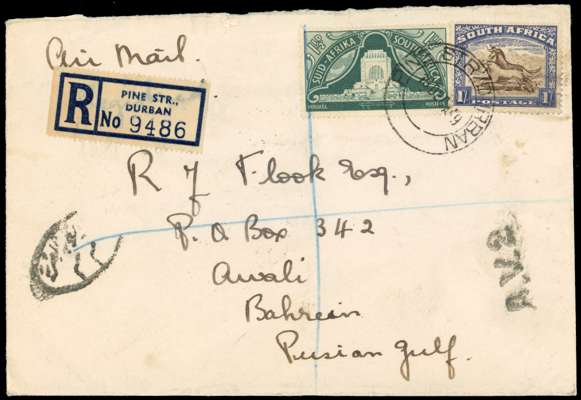 Air Mail.
SUID-AFRIKA SOUTH AFRICA
SOUTH AFRICA
POSTAGE
1/- 1/-
R
PINE STR.,
DURBAN
No 9486
R J Flook Esq.,
P. O Box 342
Awali
Bahrein
Persian Gulf.
A.V.2